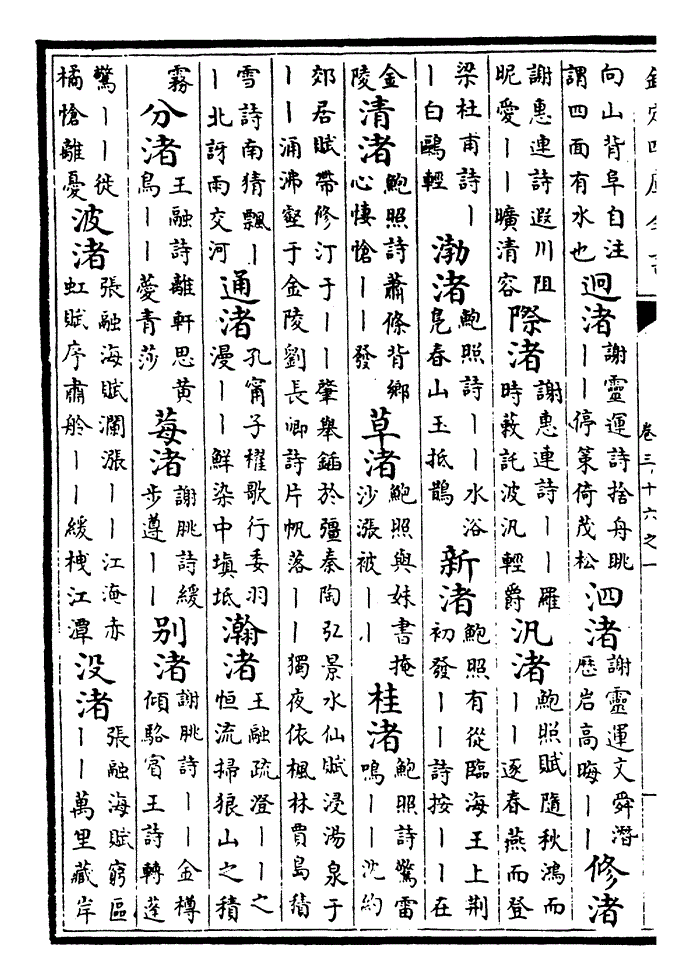 卷三十六之一
向山背阜自注謂四面有水也 迥渚 謝靈運詩捨舟眺——停策倚茂松 泗渚 謝靈運文舜潛歷岩高晦—— 修渚
謝惠連詩遐川阻昵愛——曠清容 際渚 謝惠連詩——羅時蔌託波汎輕爵 汎渚 鮑照賦隨秋鴻而——逐春燕而登
梁杜甫詩——白鷗輕 渤渚 鮑照詩——水浴鳧春山玉抵鵲 新渚 鮑照有從臨海王上荆初發——詩按——在
金陵 清渚 鮑照詩蕭條背鄉心悽愴——發 草渚 鮑照與妹書掩沙漲被—— 桂渚 鮑照詩驚雷鳴——沈約
郊居賦帶修汀于——肇舉鍤於彊秦陶弘景水仙賦浸湯泉于——涌沸壑于金陵劉長卿詩片帆落——獨夜依楓林賈島積
雪詩南猜飄——北訝雨交河 通渚 孔甯子櫂歌行委羽漫——鮮染中塡坻 瀚渚 王融疏澄——之恒流掃狼山之積
霧 分渚 王融詩離軒思黃鳥——薆青莎 莓渚 謝朓詩緩步遵—— 别渚 謝朓詩——金樽傾駱賓王詩轉蓬
驚——徙橘愴離憂 波渚 張融海賦瀾漲——江淹赤虹賦序肅舲——緩栧江潭 没渚 張融海賦窮區——萬里藏岸